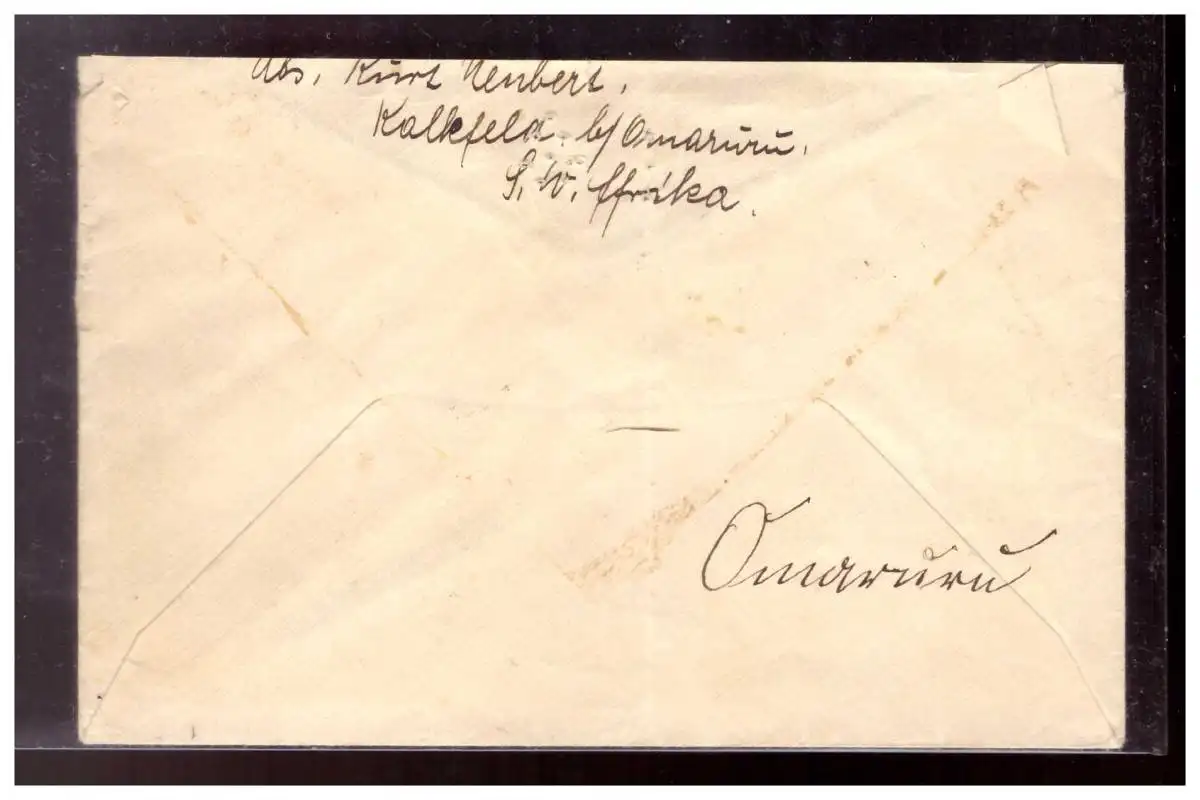 Abs. Kurt Neubert.
Kalkfeld. b/Omaruru.
S. W. Afrika.
Omaruru